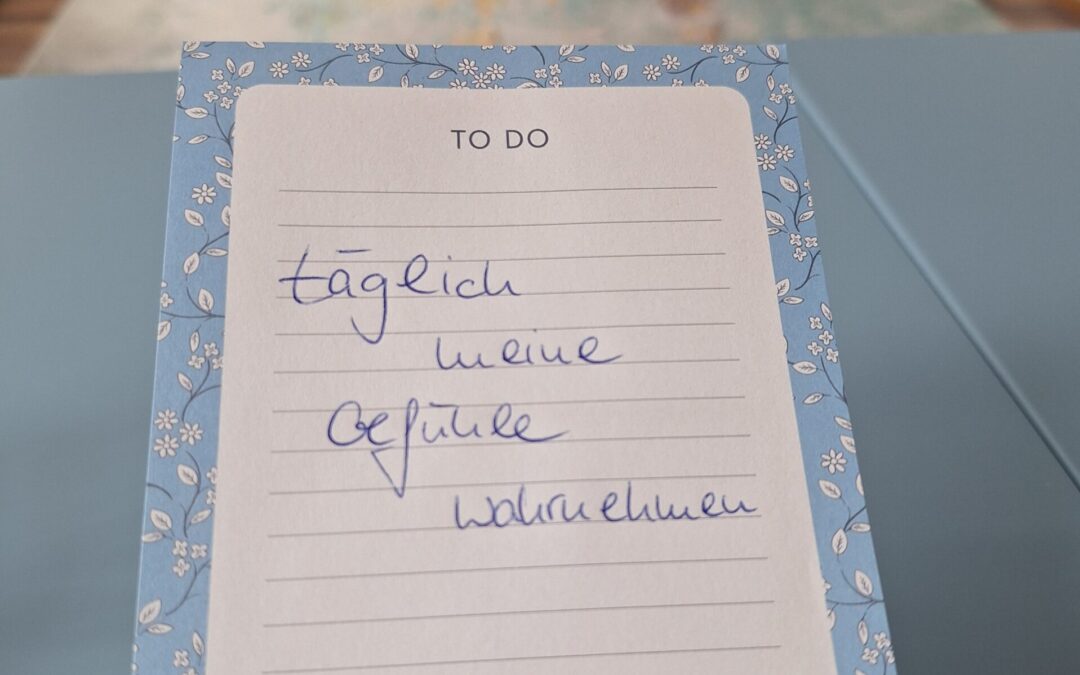 TO DO
täglich
meine
Gefühle
wahrnehmen